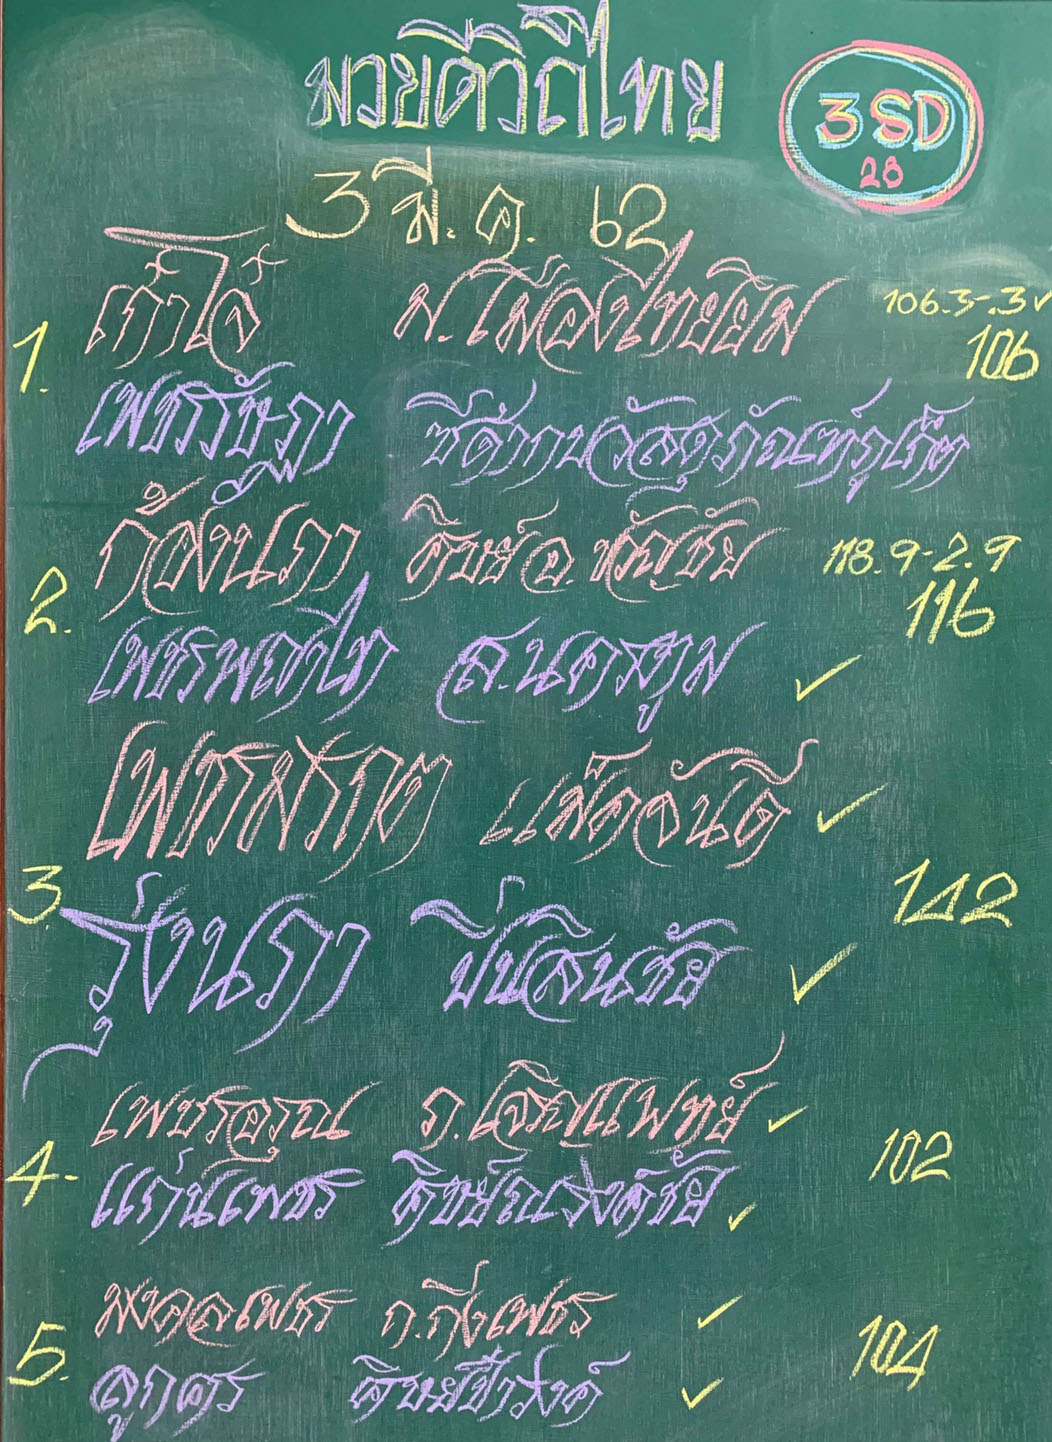 มวยดีวิถีไทย
3SD
28
3 มี.ค. 62
1.
เก้าโจ๋ ม.เมืองไทยยิม 106.3-.3✓
106
เพชรรัษฎา ซีต้าบวัสดุภัณฑ์ภูเก็ต
ก้องนภา ศิษย์ อ.ขวัญชัย 118.9-2.9
2.
116
เพชรพญาไท ส.นครทุม ✓
เพชรมราฎ แม็คจันดี ✓
3.
142
รุ่งนภา ปิ่นสินชัย ✓
เพชรอรุณ ภ.เจริญแพทย์ ✓
4. 102
แก่นเพชร ศิษย์ณรงค์ชัย ✓
มงคลเพชร ก.กิ่งเพชร ✓
5. 104
ลูกศร ศิษย์ป๋าวงค์ ✓